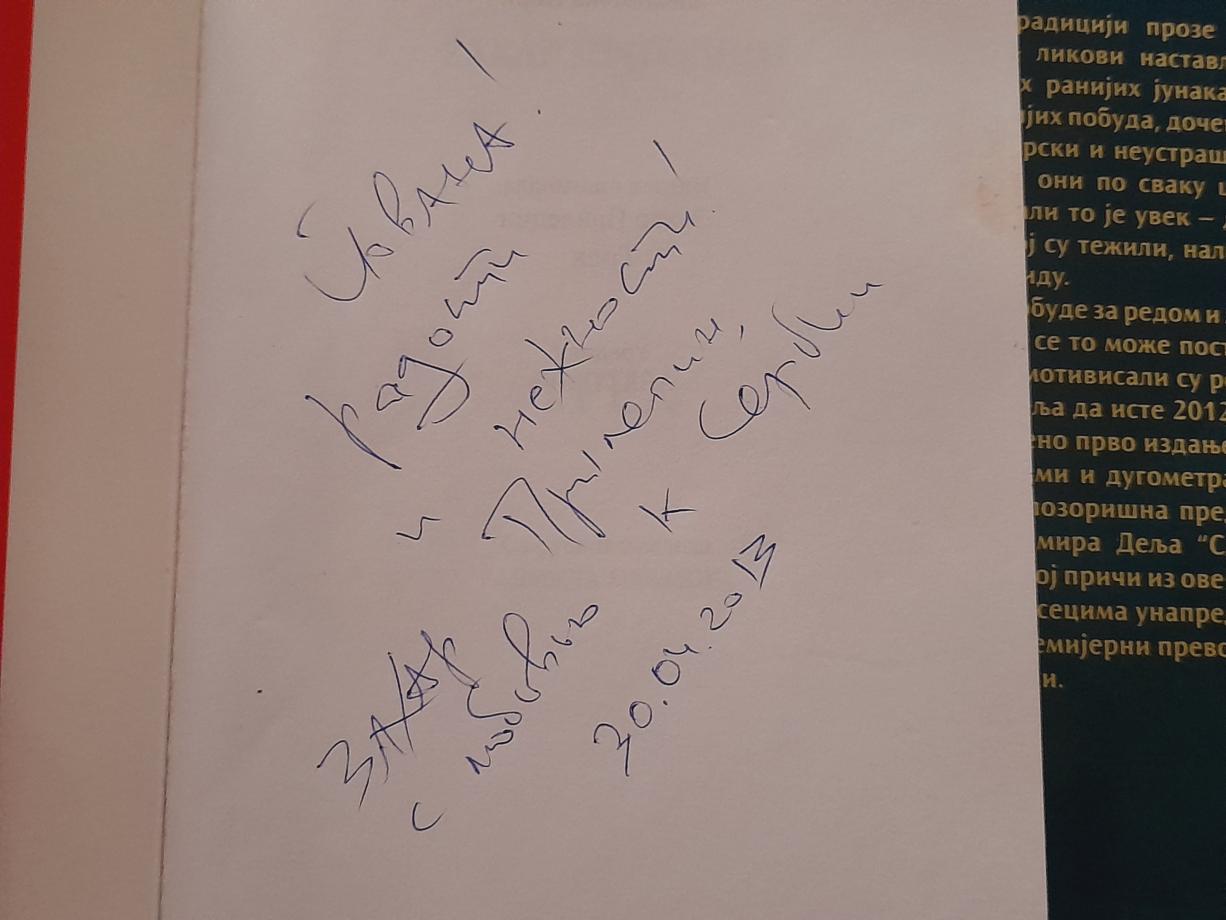 Йована!
радости
и нежности!
Захар Прилепин,
с любовью к Сербии
30.04.2013
радицији прозе
ликови настављ
х ранијих јунака
јих побуда, доче
рски и неустраш
они по сваку ц
ли то је увек –
ј су тежили, нал
иду.
буде за редом и
се то може пост
мотивисали су р
ља да исте 2012
ено прво издањ
ми и дугометра
позоришна пре
мира Деља “С
ој причи из ове
сецима унапре
емијерни прево
и.